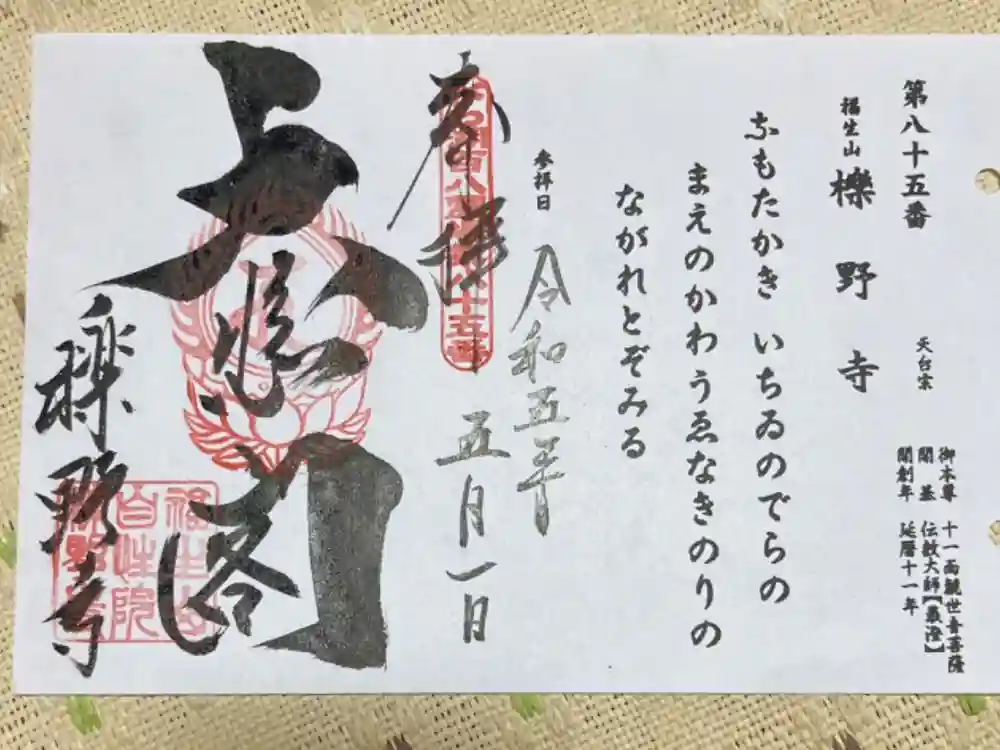 第八十五番
福生山 櫟野寺
天台宗
御本尊 十一面観世音菩薩
開基 伝教大師【最澄】
開創年 延暦十一年
なもたかき いちゐのでらの
まえのかわうゑなきのりの
ながれとぞみる
参拝日
令和五年
五月一日
奉拝
大悲閣
櫟野寺
福生山
自性院
櫟野寺